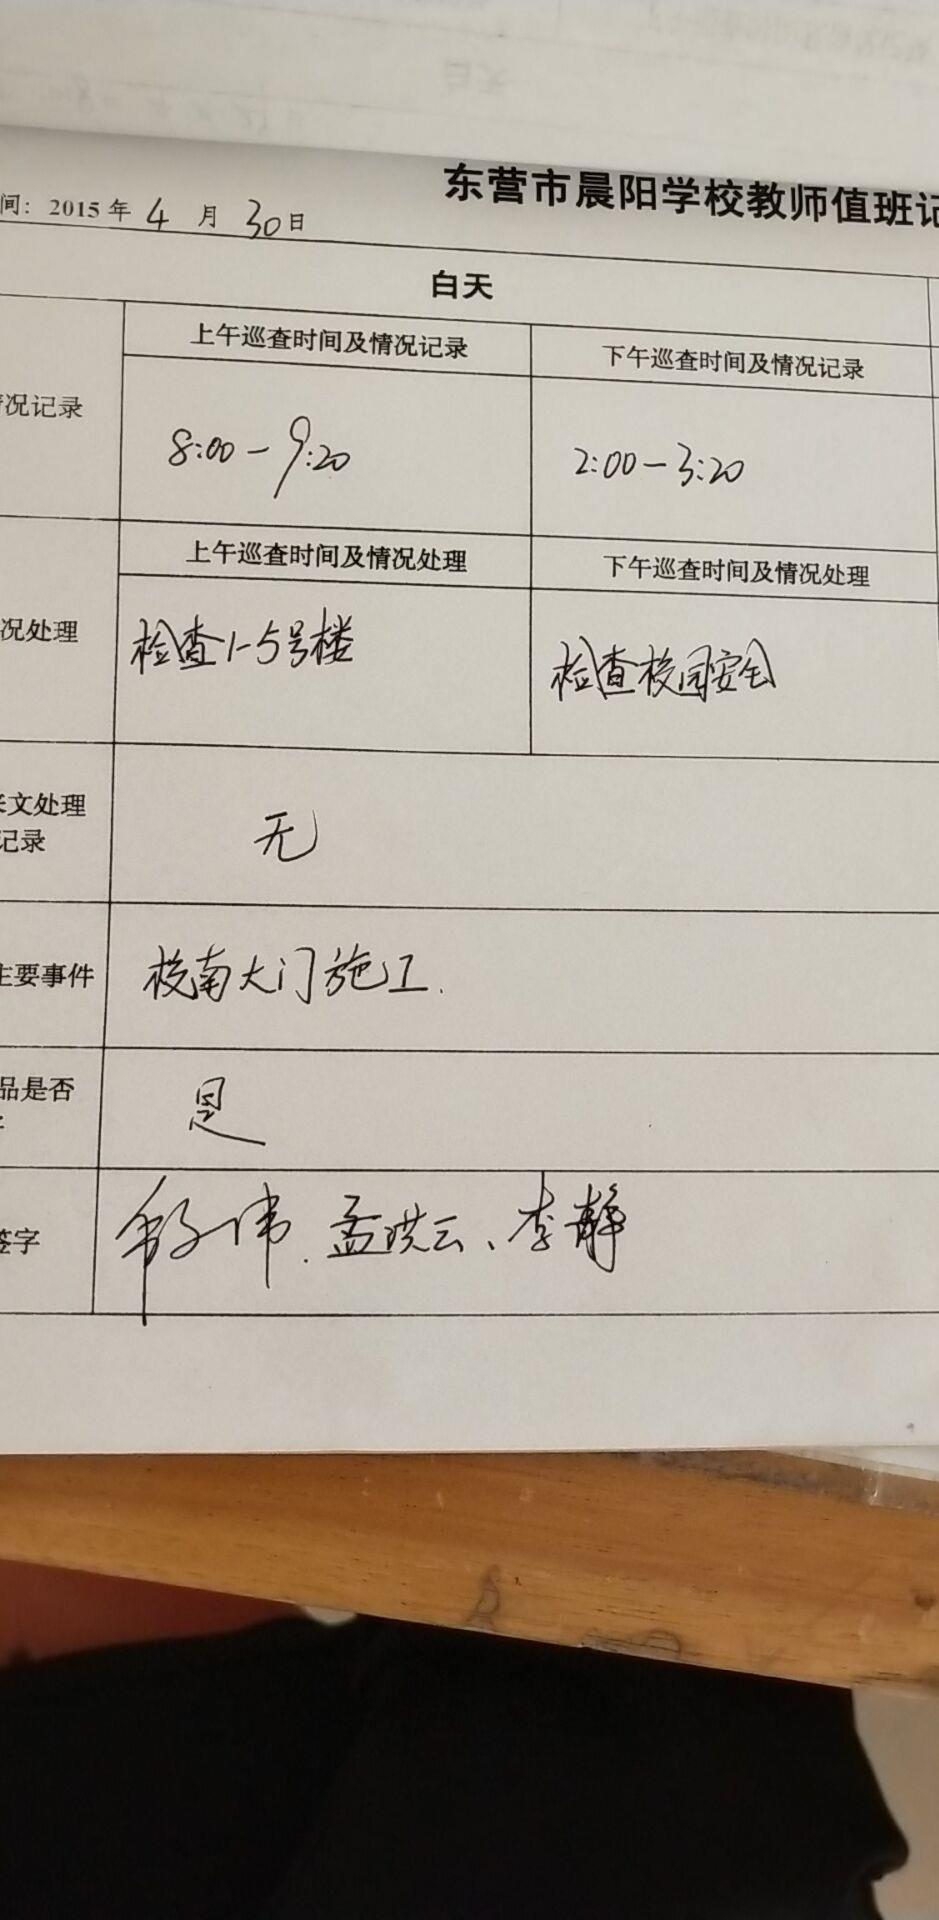 东营市晨阳学校教师值班记
间: 2015年 4 月 30日
白天
上午巡查时间及情况记录 下午巡查时间及情况记录
况记录 8:00-9:20 2:00-3:20
上午巡查时间及情况处理 下午巡查时间及情况处理
况处理 检查1-5号楼 检查校园安全
文处理
记录 无
主要事件 校南大门施工.
品是否 是
签字 孟洪云、李静